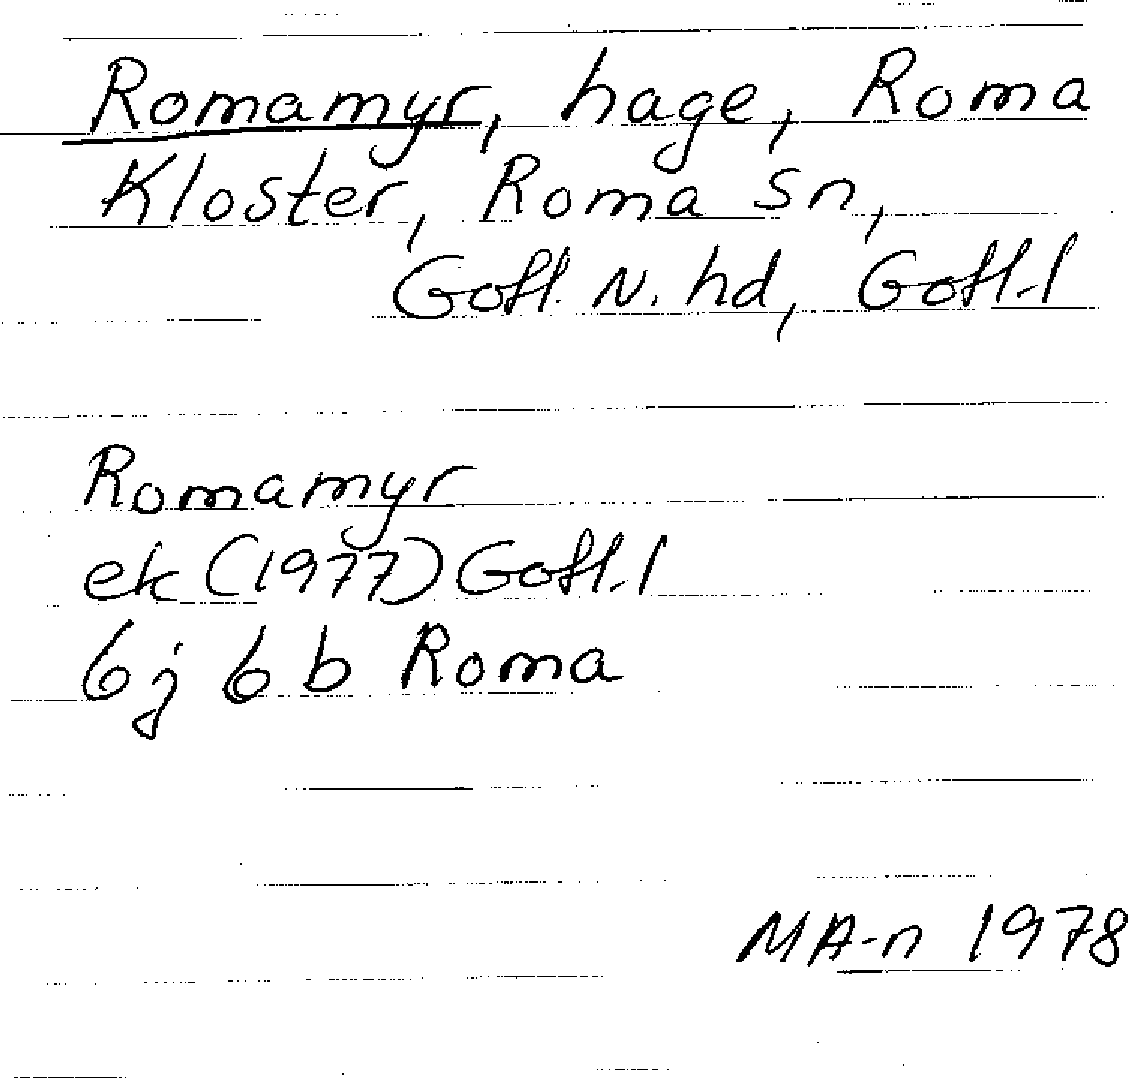 Romamyr, hage, Roma
Kloster, Roma sn,
Gotl. N. hd, Gotl. l
Romamyr
ek (1977) Gotl. l
6j 6b Roma
MA-n 1978